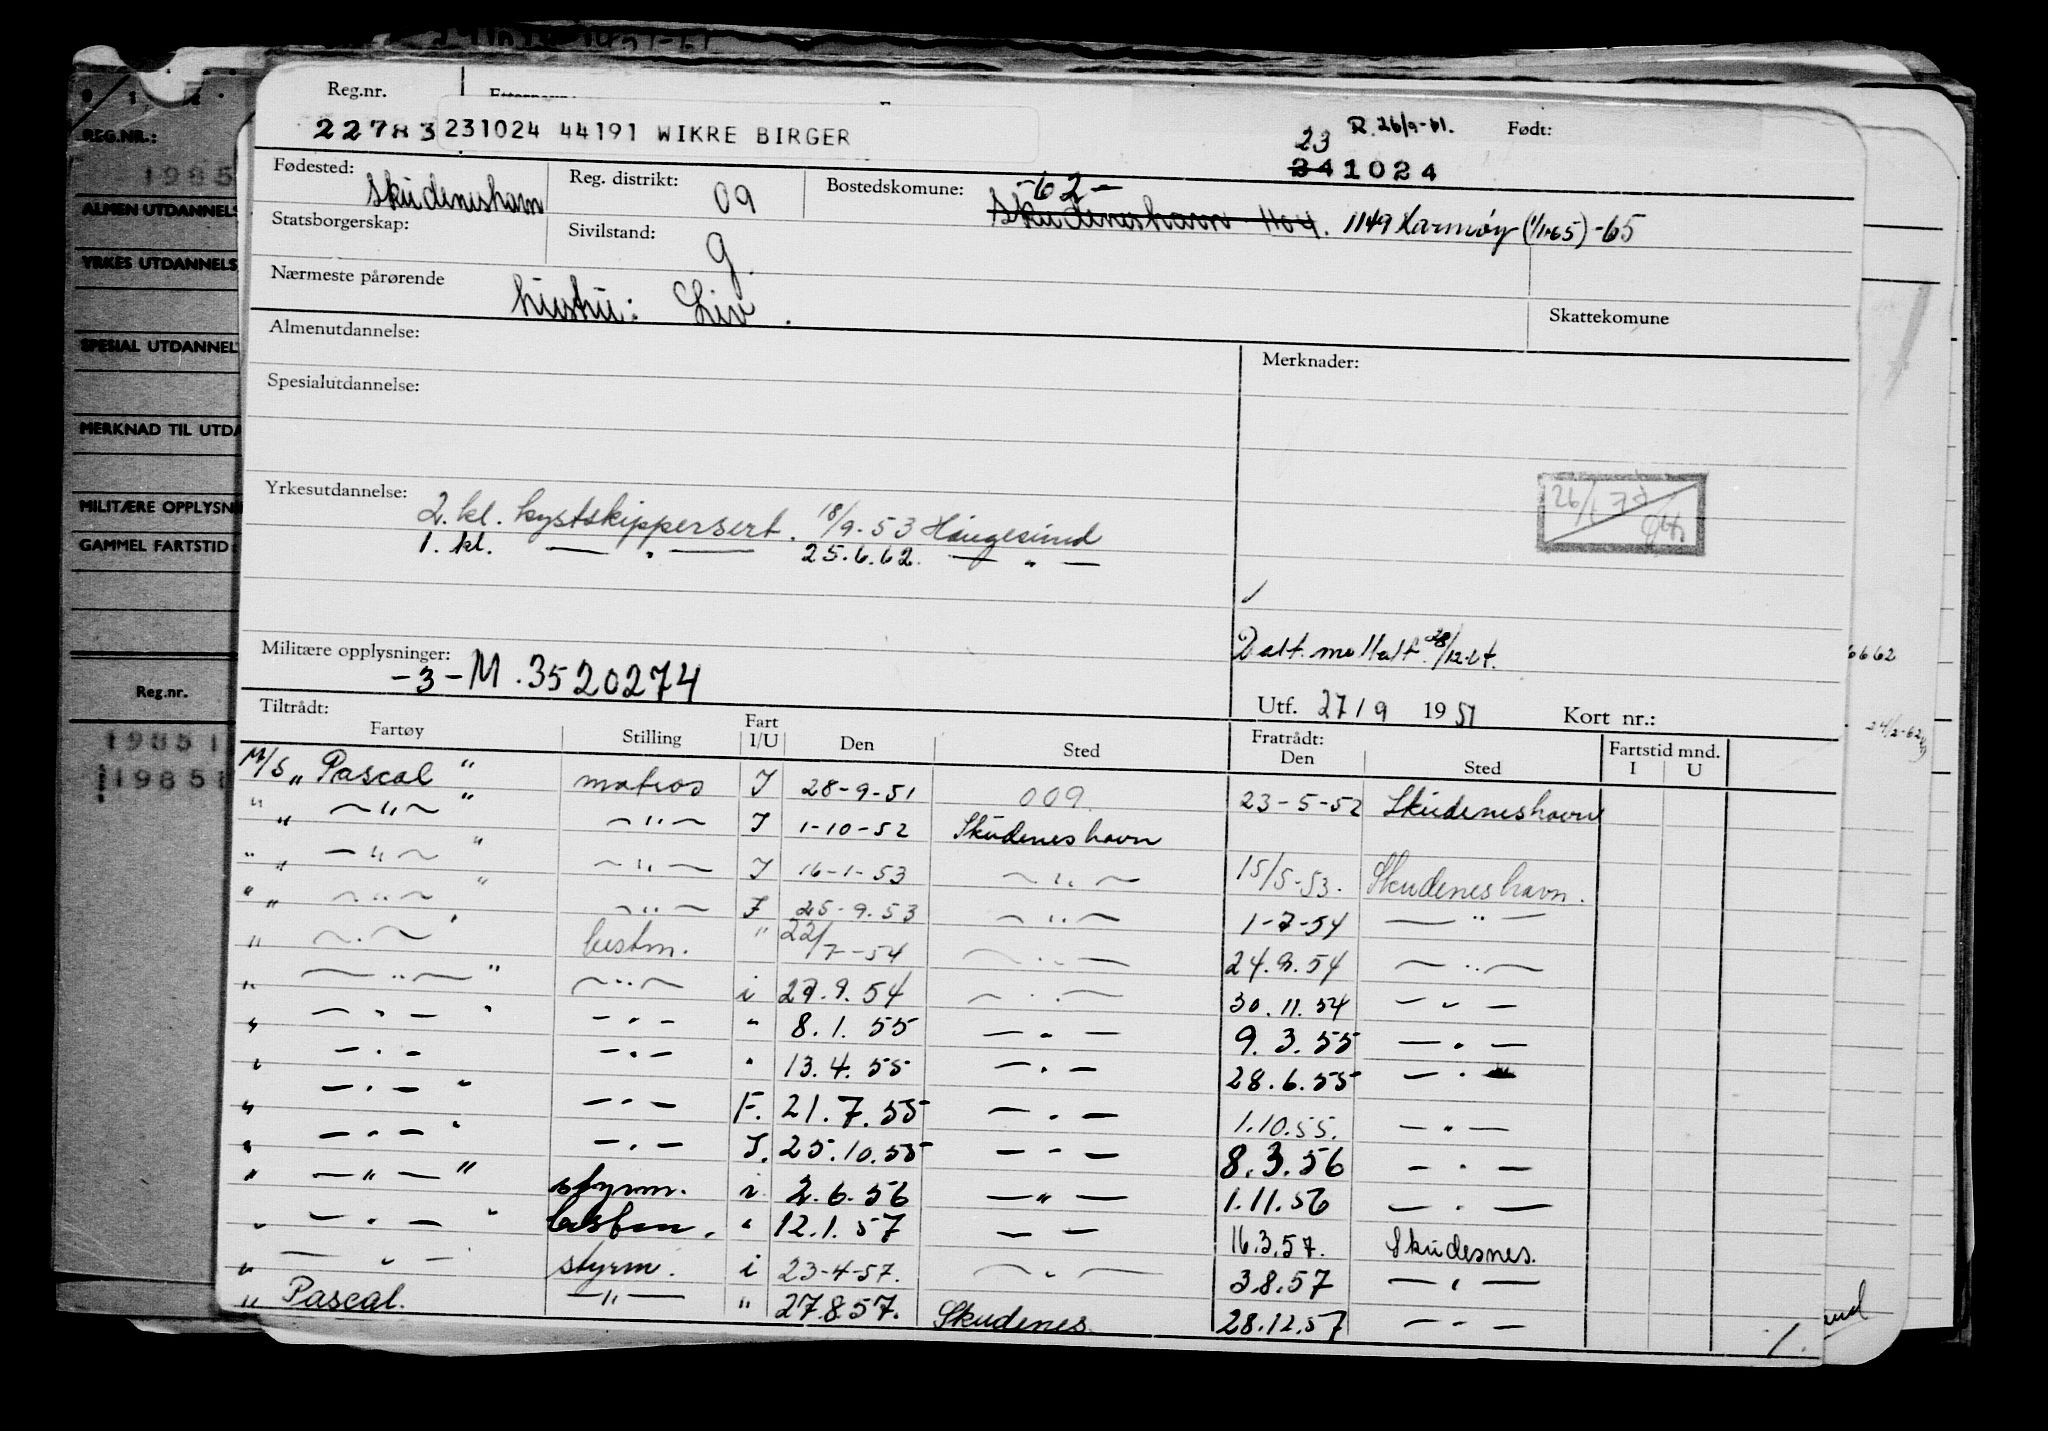 Reg.nr.
22783 231024 44191 WIKRE BIRGER
23 R. 26/9-61. Født:
241024
Fødested: Skudeneshavn Reg. distrikt: 09 Bostedskomune: -62-
Skudeneshavn 1104. 1149 Karmøy (1/1-65) -65
Statsborgerskap: Sivilstand: g.
Nærmeste pårørende hustru: Liv.
Skattekomune
Almenutdannelse: Merknader:
Spesialutdannelse:
Yrkesutdannelse: 2. kl. kystskippersert. 18/9-53 Haugesund
1. kl. — " — 25.6.62. — " —
26/1 77
Militære opplysninger: -3- M. 3520274
Utf. 27/9 1951 Kort nr.:
Tiltrådt: Fratrådt: Fartstid mnd.
Fartøy Stilling Fart I/U Den Sted Den Sted I U
M/S "Pascal" matros I 28-9-51 009. 23-5-52 Skudeneshavn
" " — " — " — " — I 1-10-52 Skudeneshavn
" " — " — " — " — I 16-1-53 — " — 15/5-53. Skudeneshavn.
" " — " — " — " — I 25-9.53 — " — 1-7-54 — " —
" — " — " bestm. " 22/7-54 — " — 24.9.54 — " —
" — " — " — " — i 29.9.54 — " — 30.11.54 — " —
" — " — " — " — " 8.1.55 — " — 9.3.55 — " —
" — " — — " — " 13.4.55 — " — 28.6.55 — " —
" — " — " — " — F. 21.7.55 — " — 1.10.55. — " —
" — " — " — " — I. 25.10.55 — " — 8.3.56 — " —
" — " — " styrm. i 2.6.56 — " — 1.11.56 — " —
" — " — " bestm. " 12.1.57 — — 16.3.57. Skudesnes.
" — " — styrm. i 23-4-57. — " — 3.8.57 — " —
" Pascal. — " — " 27.8.57. Skudenes. 28.12.57 — " —
1.
REG.NR.:
1985
ALMEN UTDANNELS
YRKES UTDANNELS
SPESIAL UTDANNEL
MERKNAD TIL UTDA
MILITÆRE OPPLYSNI
GAMMEL FARTSTID
Reg.nr.
19851
19851
6662
24/2-62